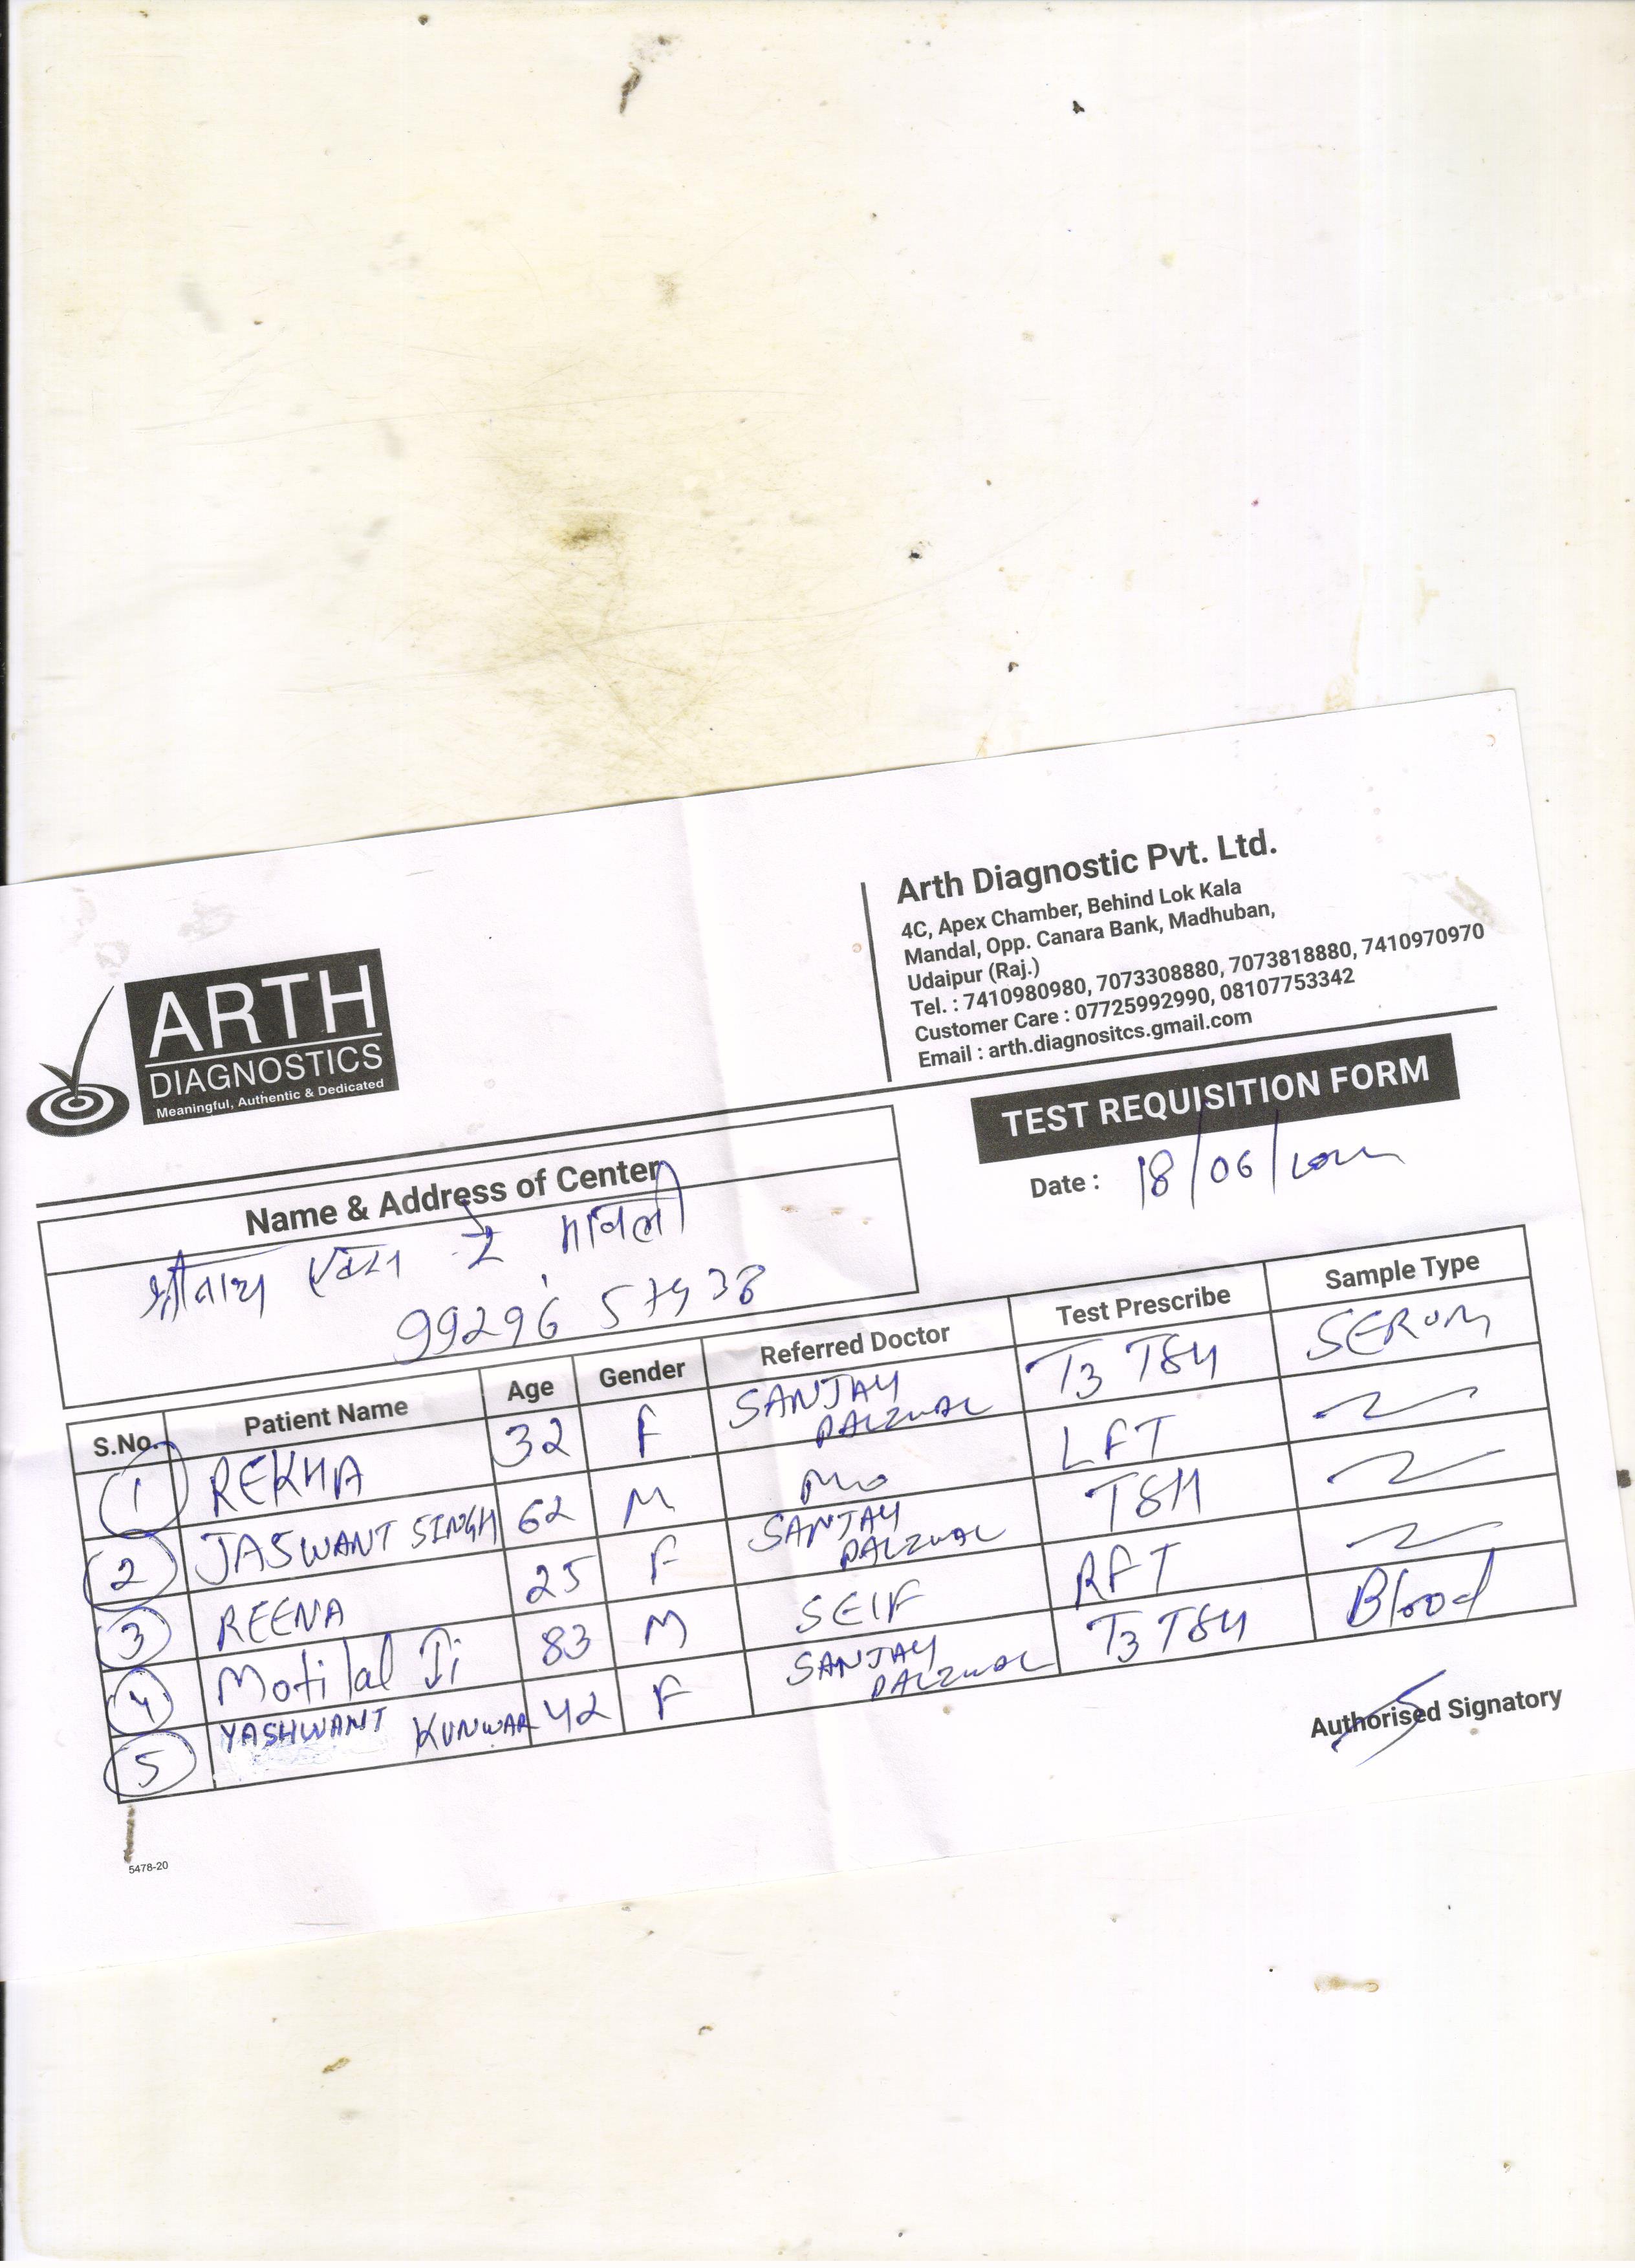 ARTH
DIAGNOSTICS
Meaningful, Authentic & Dedicated
Arth Diagnostic Pvt. Ltd.
4C, Apex Chamber, Behind Lok Kala
Mandal, Opp. Canara Bank, Madhuban,
Udaipur (Raj.)
Tel. : 7410980980, 7073308880, 7073818880, 7410970970
Customer Care : 07725992990, 08107753342
Email : arth.diagnositcs.gmail.com
TEST REQUISITION FORM
Date : 18/06/
Name & Address of Center
श्रीनाथ एक्स रे मावली
99296 57938
S.No. Patient Name Age Gender Referred Doctor Test Prescribe Sample Type
1 REKHA 32 F SANJAY T3 TSH SERUM
2 JASWANT SINGH 62 M LFT
3 REENA 25 F SANJAY TSH
4 Motilal Ji 83 M SELF RFT
5 YASHWANT KUNWAR 42 F SANJAY T3 TSH Blood
Authorised Signatory
5478-20